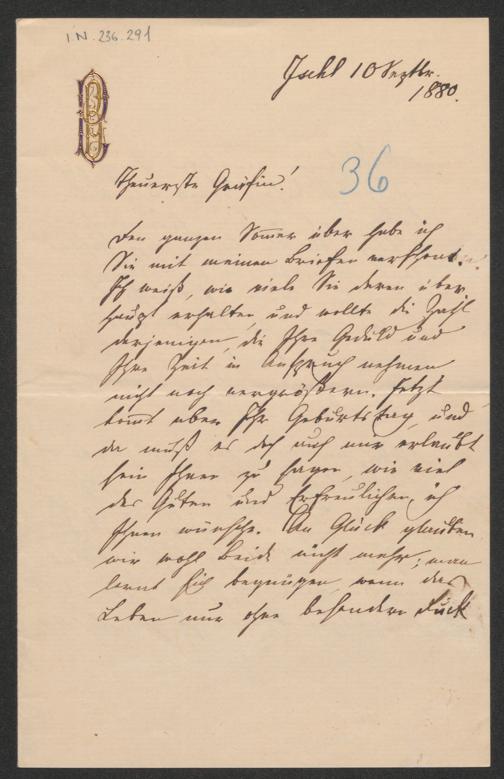 I.N. 236.291
Ischl 10 Septbr.
1880.
36
Theuerste Gräfin!
Den ganzen Somer über habe ich
Sie mit meinen Briefen verschont.
Ich weiß, wie viele Sie deren über
haupt erhalten, und wollte die Zahl
derjenigen, die Ihre Geduld und
Ihre Zeit in Anspruch nehmen
nicht noch vergrößern. Jetzt
komt aber Ihr Geburtstag, und
da muß es doch auch mir erlaubt
sein Ihnen zu sagen, wie viel
des Guten und Erfreulichen, ich
Ihnen wünsche. An Glück glauben
wir wohl Beide nicht mehr; man
lernt sich begnügen, wenn das
Leben nur ohne besondere Tück